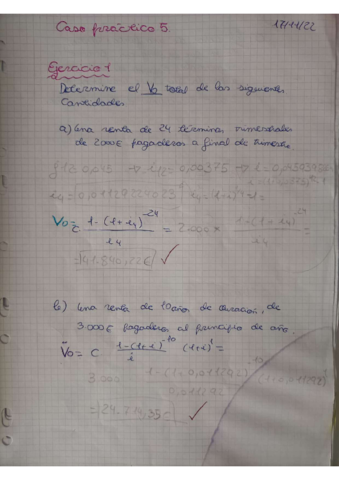 Caso práctico 5.
17/11/22
Ejercicio 1
Determine el Vo total de las siguientes
Cantidades
a) Una renta de 24 términos trimestrales
de 2000€ pagaderos a final de trimestre
j12 0,045 → i12 = 0,00375 →
Vo = c 1-(1+i4)^-24 / i4 = 2.000 *
= 41.840, ✓
b) Una renta de 10 años de duración, de
3.000€ pagaderos al principio de año.
V̈o = C 1-(1+i)^-10 / i (1+i)^1 =
3.000
= 24.714,35 = ✓